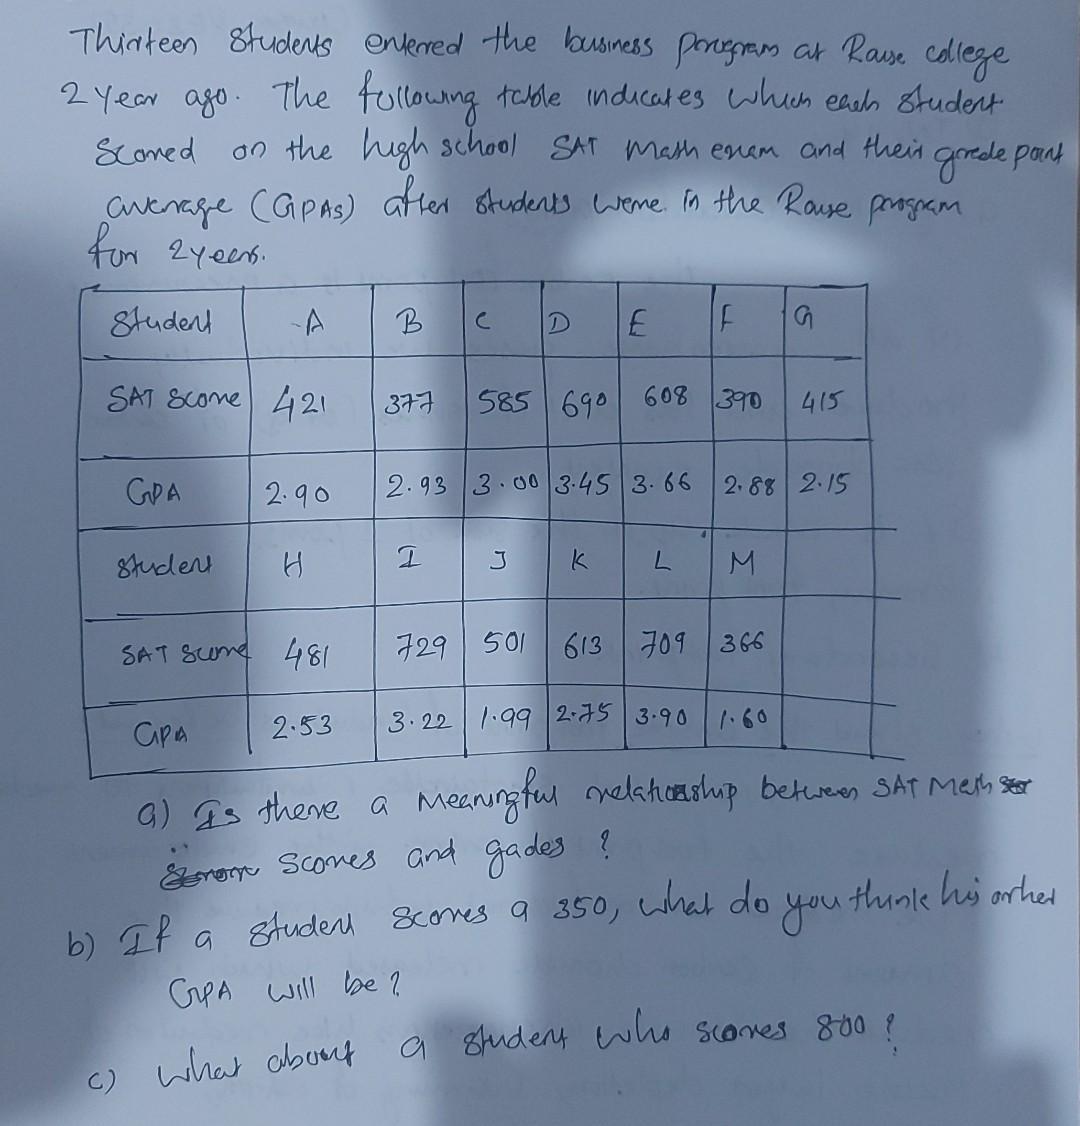 Thirteen Students entered the business program at Rause college
2 Year ago. The following table indicates which each Student
Scored on the high school SAT math exam and their grade point
average (GPAs) after students were in the Rouse program
for 2 years.
Student A B C D E F G
SAT Score 421 377 585 690 608 390 415
GPA 2.90 2.93 3.00 3.45 3.66 2.88 2.15
Student H I J K L M
SAT Score 481 729 501 613 709 366
GPA 2.53 3.22 1.99 2.75 3.90 1.60
a) Is there a Meaningful relationship between SAT Math
scores and gades ?
b) If a student scores a 350, what do you think his or her
GPA will be ?
c) What about a student who scores 800 ?